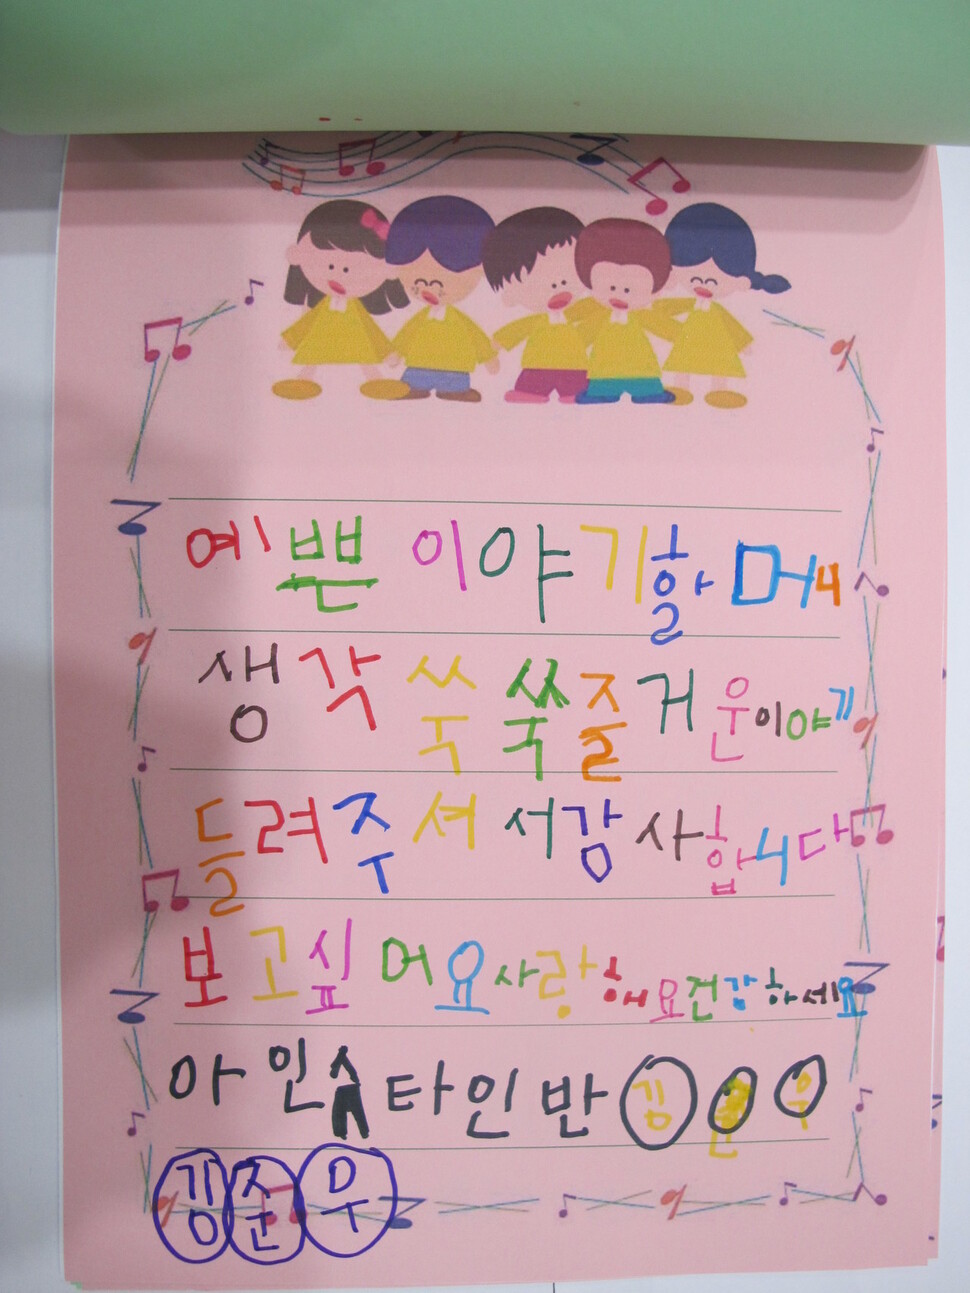 예쁜 이야기할머니
생각쑥쑥즐거운이야기
들려주셔서감사합니다
보고싶어요사랑해요건강하세요
아인슈타인반 김준우
김준우